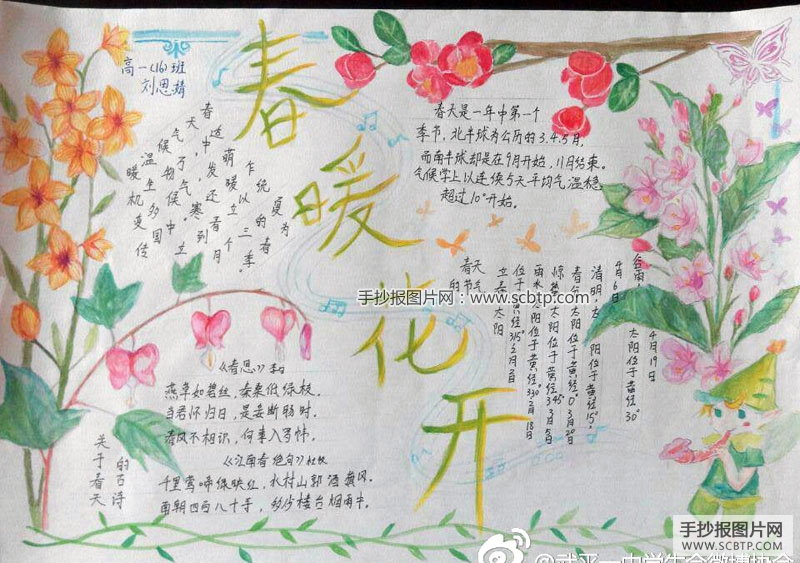 高一(16)班
刘思
春暖花开
春天气候温暖
适中，万物生机
萌发，气候多变
乍暖还寒。中国传
统以立春到立
夏的三个月
为春季。
春天是一年中第一个
季节，北半球为公历的3.4.5月，
而南半球却是在9月开始，11月结束。
气候学上以连续5天平均气温稳
超过10°开始。
春天
的节气
立春，太阳
位于黄经315°2月2日
雨水，太阳位于黄经330°2月18日
惊蛰，太阳位于黄经345°3月5日
春分，太阳位于黄经0°3月20日
清明，太阳位于黄经15°，
4月6日
谷雨，太阳位于黄经30°
4月19日
手抄报图片网：www.scbtp.com
《春思》李白
燕草如碧丝，秦桑低绿枝。
当君怀归日，是妾断肠时。
春风不相识，何事入罗帏。
《江南春绝句》杜牧
千里莺啼绿映红，水村山郭酒旗风。
南朝四百八十寺，多少楼台烟雨中。
关于春天
的古诗
手抄报图片网
WWW.SCBTP.COM
@武平一中学生会微博协会